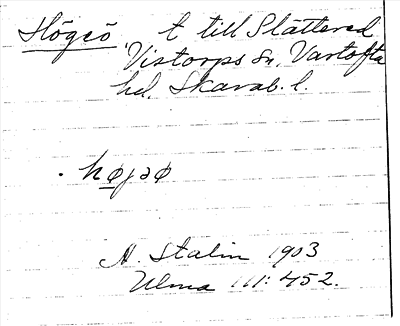 Högeö t till Slättered
Vistorps Sn, Vartofta
hd. Skarab. l.
. højəø
N. Stalin 1903
Ulma 111: 452.